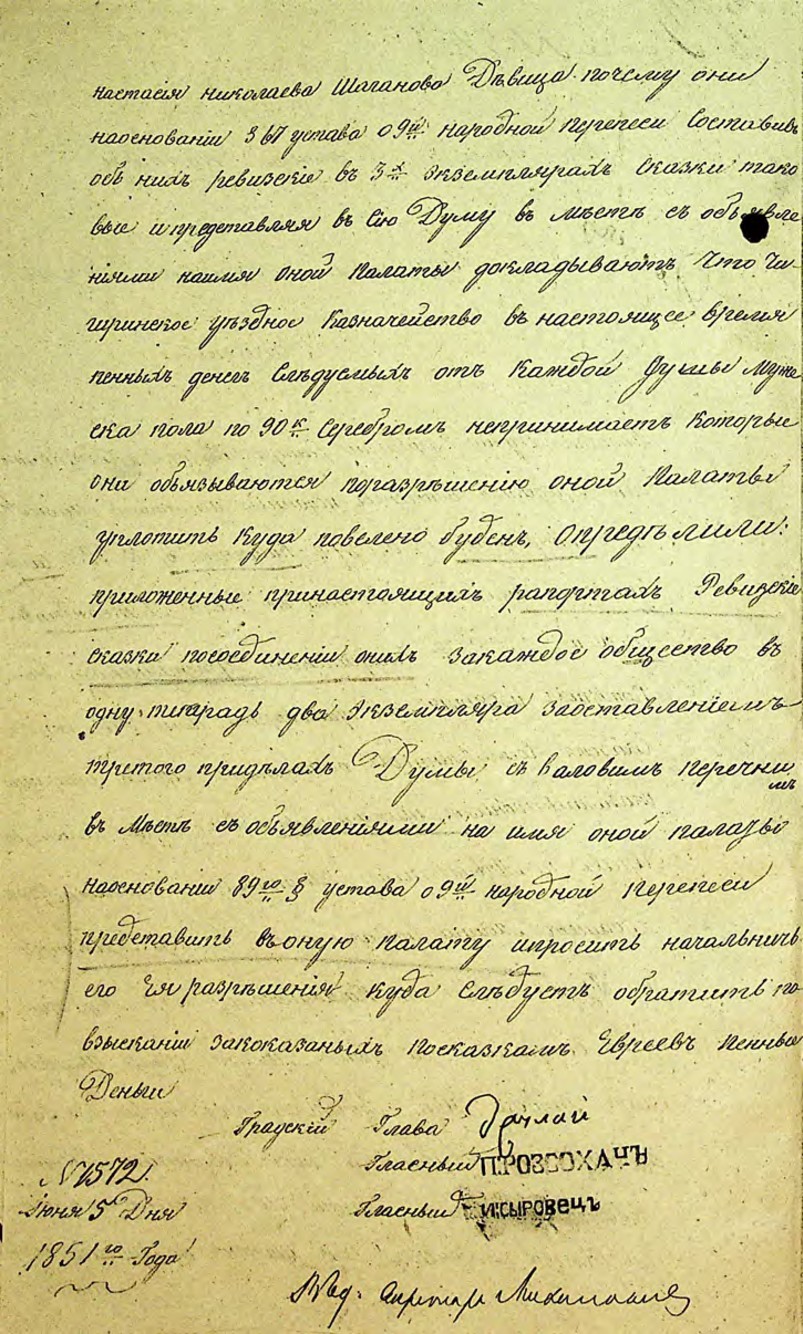 настасія николаева Шаганова Дѣвица почему они
наоснованіи 367 устава о 9й народной Переписи Составивъ
объ нихъ ревизскіе въ 3х экземплярахъ сказки тако
вые и представляя въ Сію Думу въ мѣстѣ съ объявле
ніями наимя оной Палаты докладываютъ что Чи
гиринское уѣздное Казначейство въ настоящее время
пенныхъ денегъ Слѣдуемыхъ отъ каждой души муже
ска пола по 90 к Серебромъ непринимаетъ Которые
они обязываются поразрѣшенію оной Палаты
уплотить куда повелено буденъ, Опредѣлили:
приложенные принастоящихъ рапортахъ Ревизскіе
сказки посоединеніи онихъ закаждое общество въ
одну титрадь два экземпляра заоставленіемъ
третого придѣлахъ Думы съ Валовимъ перечни
мъ
въ Мѣстѣ съ объявленіями на имя оной палаты
наоснованіи 89го § устава о 9й народной Переписи
представить въ оную палату ипросить началничь
его разрѣшенія куда Слѣдуетъ обратить по
взысканіи закоказаныхъ посказкамъ Евреевъ Пенные
Деньги
Градскій Глава
Гласный П. РОЗСОХАЧЪ
№ 1572.
Гласный И. СЫРОВЕЦЪ
Іюня 5 Дня
1851го Года